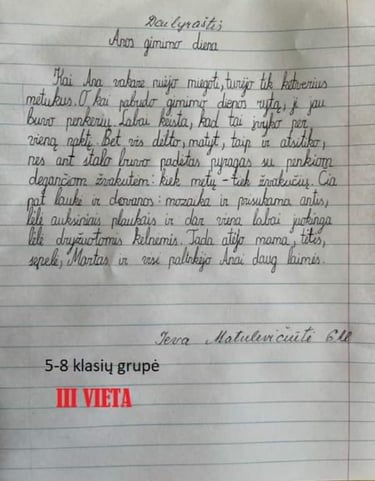 Dailyraštis
Anos gimimo diena
Kai Ana vakare nuėjo miegoti, turėjo tik ketverius
metukus. O kai pabudo gimimo dienos rytą, ji jau
buvo penkerių. Labai keista, kad tai įvyko per
vieną naktį. Bet vis dėlto, matyt, taip ir atsitiko,
nes ant stalo buvo padėtas pyragas su penkiom
degančiom žvakutėm: kiek metų - tiek žvakučių. Čia
pat laukė ir dovanos: mozaika ir prisukama antis,
lėlė auksiniais plaukais ir dar viena labai juokinga
lėlė dryžuotomis kelnėmis. Tada atėjo mama, tėtis,
senelė, Martas ir visi palinkėjo Anai daug laimės.
Ieva Matulevičiūtė
5-8 klasių grupė
III VIETA